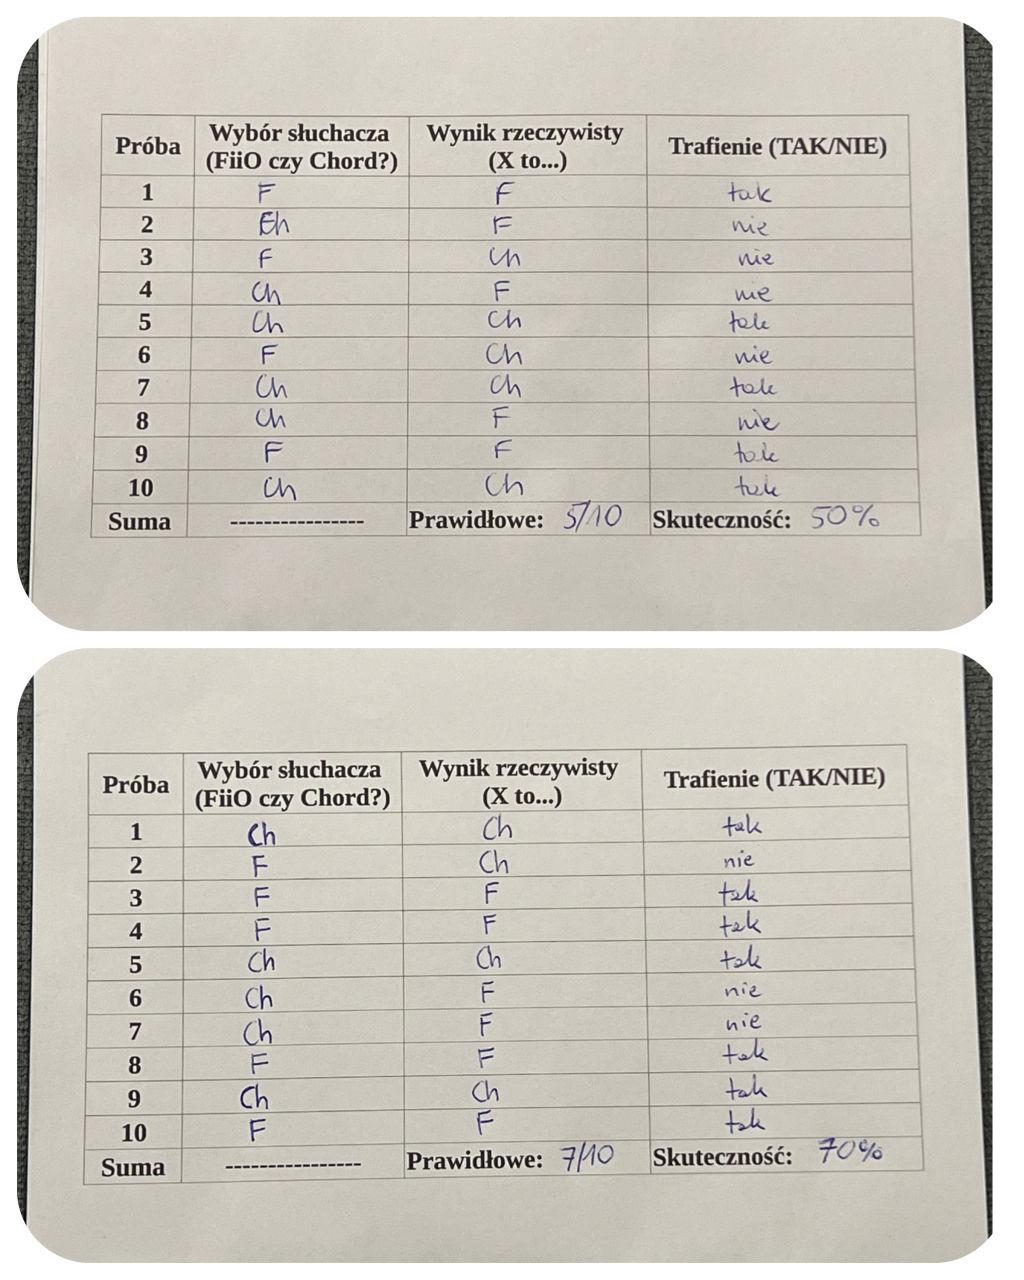 Próba Wybór słuchacza (FiiO czy Chord?) Wynik rzeczywisty (X to...) Trafienie (TAK/NIE)
1 F F tak
2 Ch F nie
3 F Ch nie
4 Ch F nie
5 Ch Ch tak
6 F Ch nie
7 Ch Ch tak
8 Ch F nie
9 F F tak
10 Ch Ch tak
Suma ---------------- Prawidłowe: 5/10 Skuteczność: 50%
Próba Wybór słuchacza (FiiO czy Chord?) Wynik rzeczywisty (X to...) Trafienie (TAK/NIE)
1 Ch Ch tak
2 F Ch nie
3 F F tak
4 F F tak
5 Ch Ch tak
6 Ch F nie
7 Ch F nie
8 F F tak
9 Ch Ch tak
10 F F tak
Suma ---------------- Prawidłowe: 7/10 Skuteczność: 70%